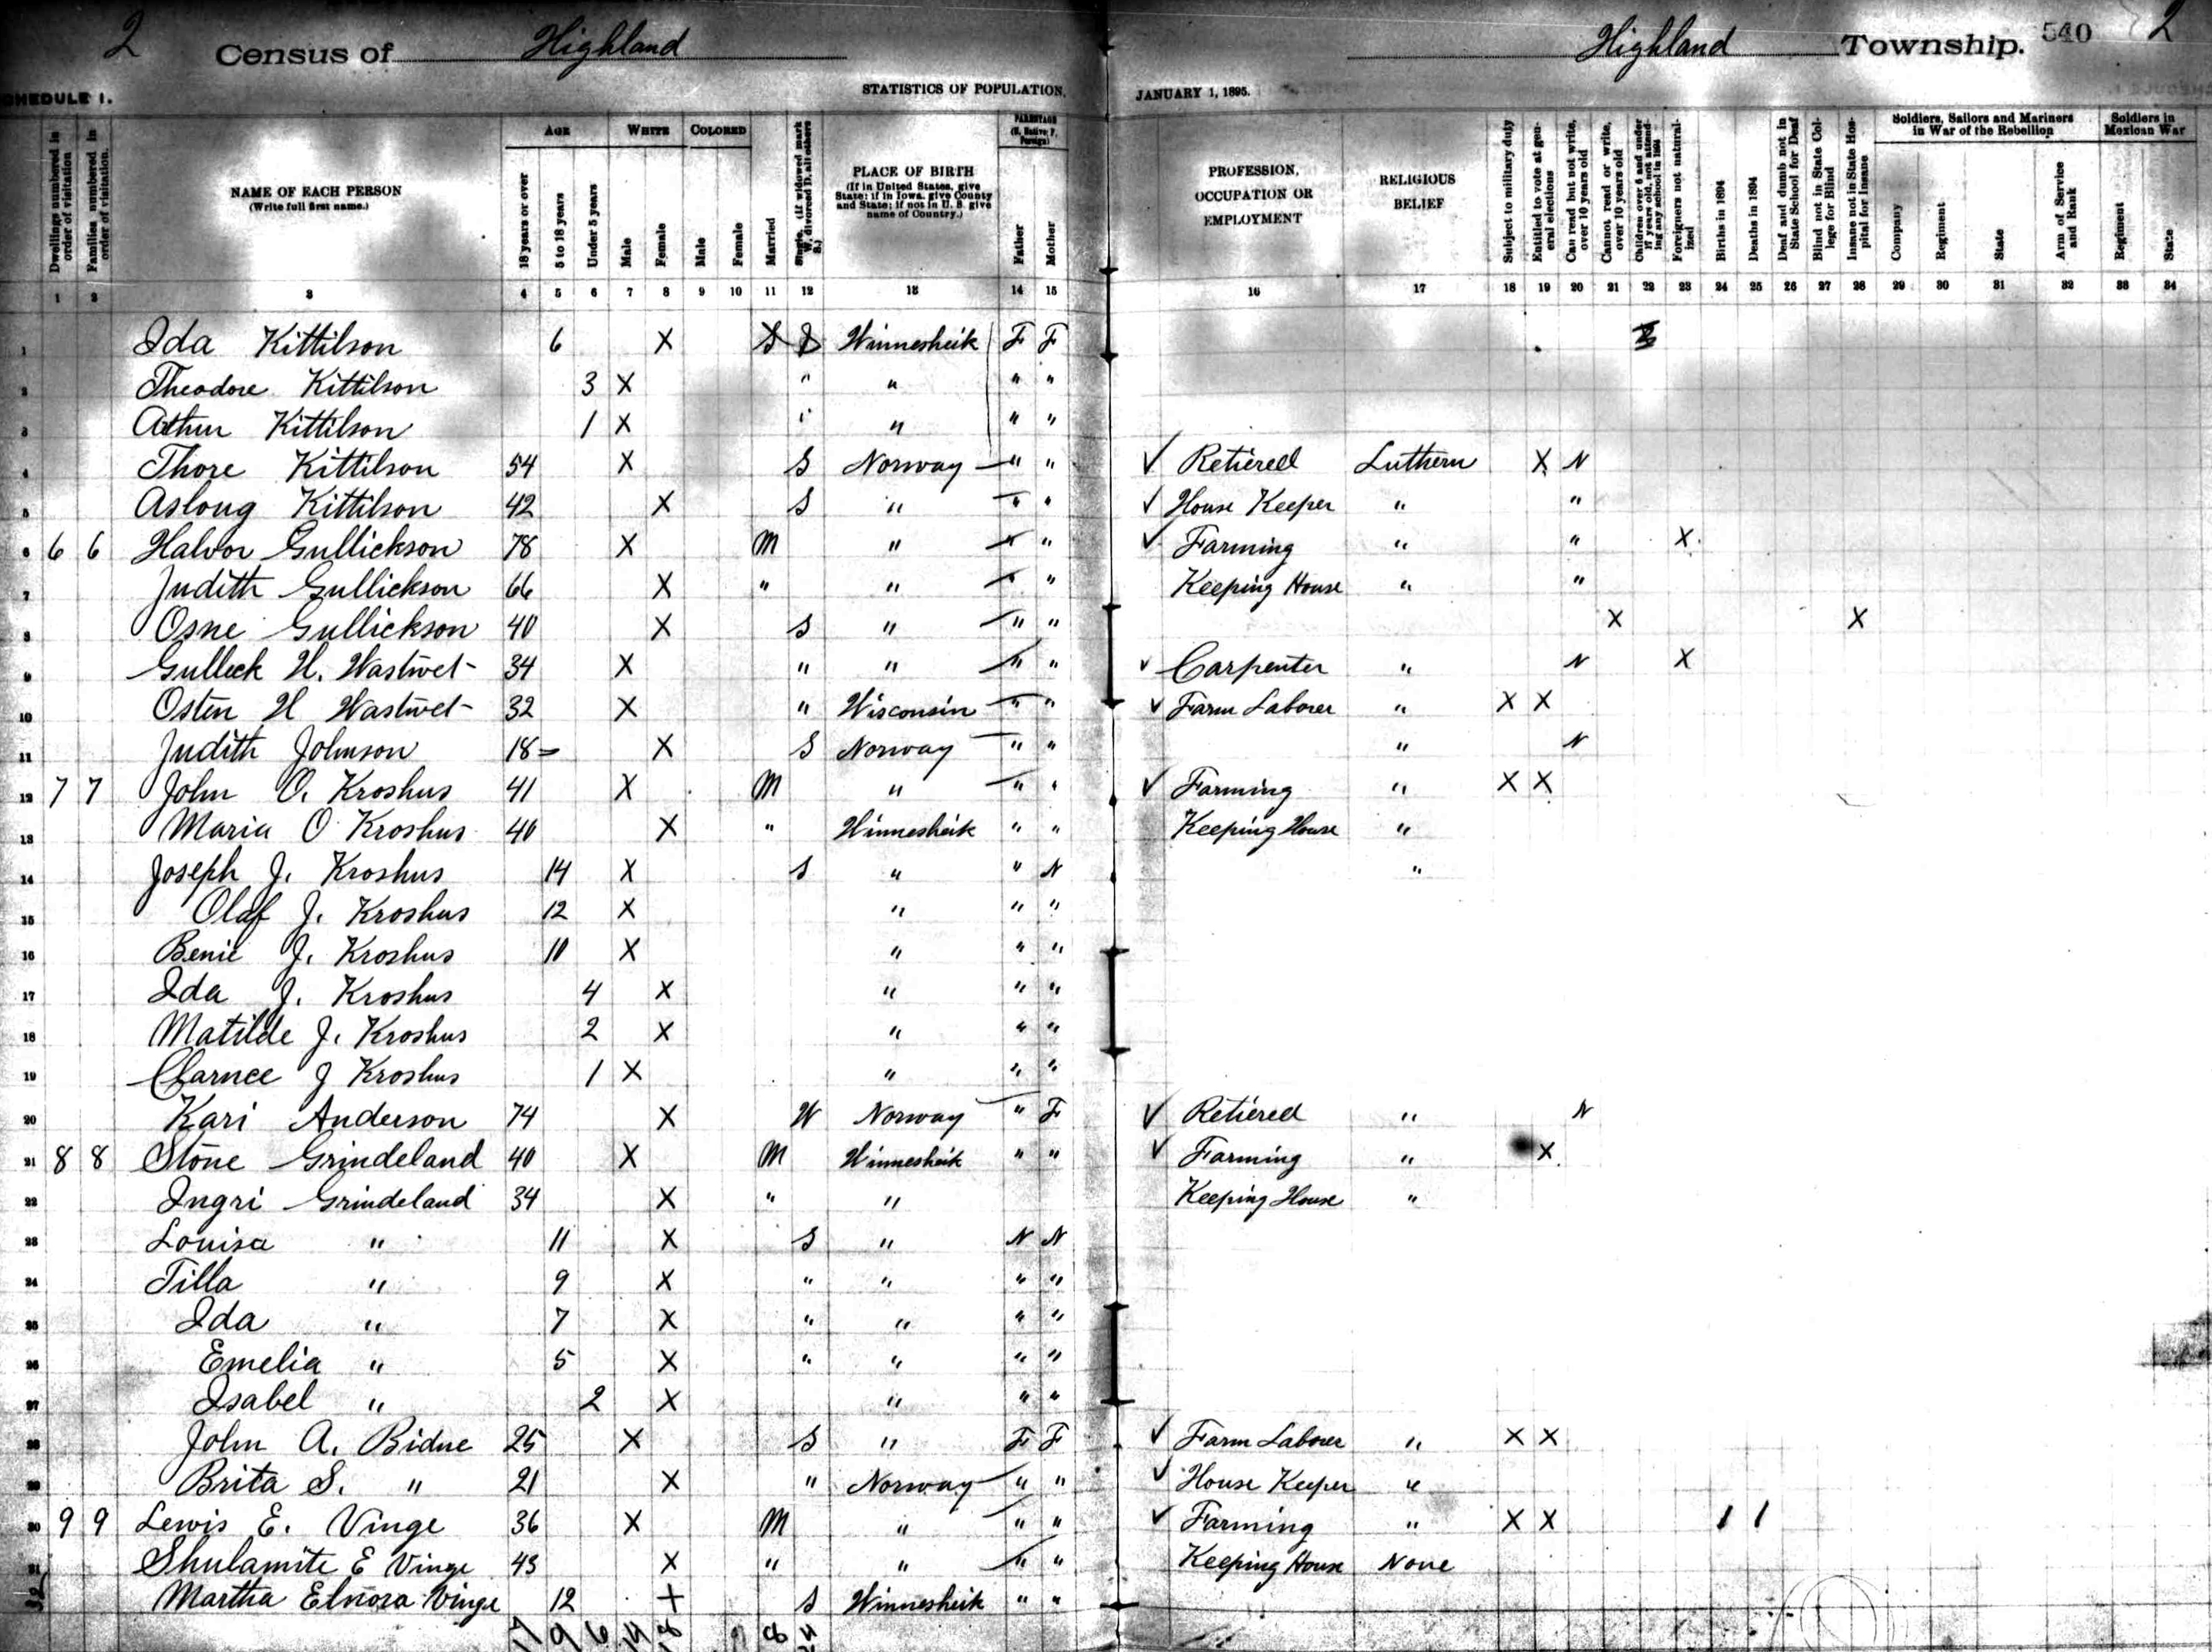 2 Census of Highland Highland Township. 540 2
SCHEDULE 1. STATISTICS OF POPULATION, JANUARY 1, 1895.
Dwellings numbered in order of visitation
Families numbered in order of visitation.
NAME OF EACH PERSON
(Write full first name.)
AGE
18 years or over
5 to 18 years
Under 5 years
WHITE
Male
Female
COLORED
Male
Female
Married
Single, (if widowed mark W, divorced D, all others S.)
PLACE OF BIRTH
(If in United States, give State; if in Iowa, give County and State; if not in U. S. give name of Country.)
PARENTAGE
(N. Native; F. Foreign)
Father
Mother
PROFESSION, OCCUPATION OR EMPLOYMENT
RELIGIOUS BELIEF
Subject to military duty
Entitled to vote at general elections
Can read but not write, over 10 years old
Cannot read or write, over 10 years old
Children over 6 and under 17 years old, not attending any school in 1894
Foreigners not naturalized
Births in 1894
Deaths in 1894
Deaf and dumb not in State School for Deaf
Blind not in State College for Blind
Insane not in State Hospital for Insane
Soldiers, Sailors and Mariners in War of the Rebellion
Company
Regiment
State
Arm of Service and Rank
Soldiers in Mexican War
Regiment
State
1 2 3 4 5 6 7 8 9 10 11 12 13 14 15 16 17 18 19 20 21 22 23 24 25 26 27 28 29 30 31 32 33 34
1 Ida Kittilson 6 X Winnesheik F F
2 Theodore Kittilson 3 X " " " "
3 Athur Kittilson 1 X " " " "
4 Thore Kittilson 54 X S Norway " " ✓ Retiered Luthern X N
5 Asloug Kittilson 42 X S " " " ✓ House Keeper " "
6 6 6 Halvor Gullickson 78 X M " " " ✓ Farming " " X
7 Judith Gullickson 66 X " " " " Keeping House " "
8 Osne Gullickson 40 X S " " " X X
9 Gulleck H. Wastvet 34 X " " " " ✓ Carpenter " N X
10 Osten H Wastvet 32 X " Wisconsin " " ✓ Farm Laborer " X X
11 Judith Johnson 18 X S Norway " " " N
12 7 7 John O. Kroshus 41 X M " " " ✓ Farming " X X
13 Maria O Kroshus 40 X " Winnesheik " " Keeping House "
14 Joseph J. Kroshus 14 X S " " N "
15 Olaf J. Kroshus 12 X " " "
16 Benie J. Kroshus 10 X " " "
17 Ida J. Kroshus 4 X " " "
18 Matilde J. Kroshus 2 X " " "
19 Clarnce J Kroshus 1 X " " "
20 Kari Anderson 74 X W Norway " F ✓ Retiered " N
21 8 8 Stone Grindeland 40 X M Winnesheik " " ✓ Farming " X
22 Ingri Grindeland 34 X " " Keeping House "
23 Louisa " 11 X S " N N
24 Tilla " 9 X " " " "
25 Ida " 7 X " " " "
26 Emelia " 5 X " " " "
27 Isabel " 2 X " " "
28 John A. Bidne 25 X S " F F ✓ Farm Laborer " X X
29 Brita S. " 21 X " Norway " " ✓ House Keeper "
30 9 9 Lewis E. Vinge 36 X M " " " ✓ Farming " X X 1 1
31 Shulamite E Vinge 43 X " " " " Keeping House None
32 Martha Elnora Vinge 12 X S Winnesheik " "
17 9 6 14 18 8 24